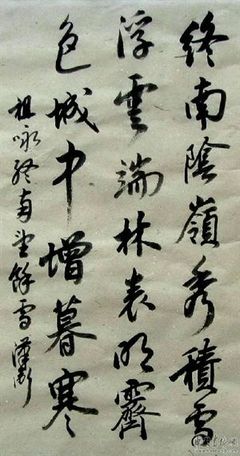 終南陰嶺秀積雪
浮雲端林表明霽
色城中增暮寒
祖咏終南望餘雪